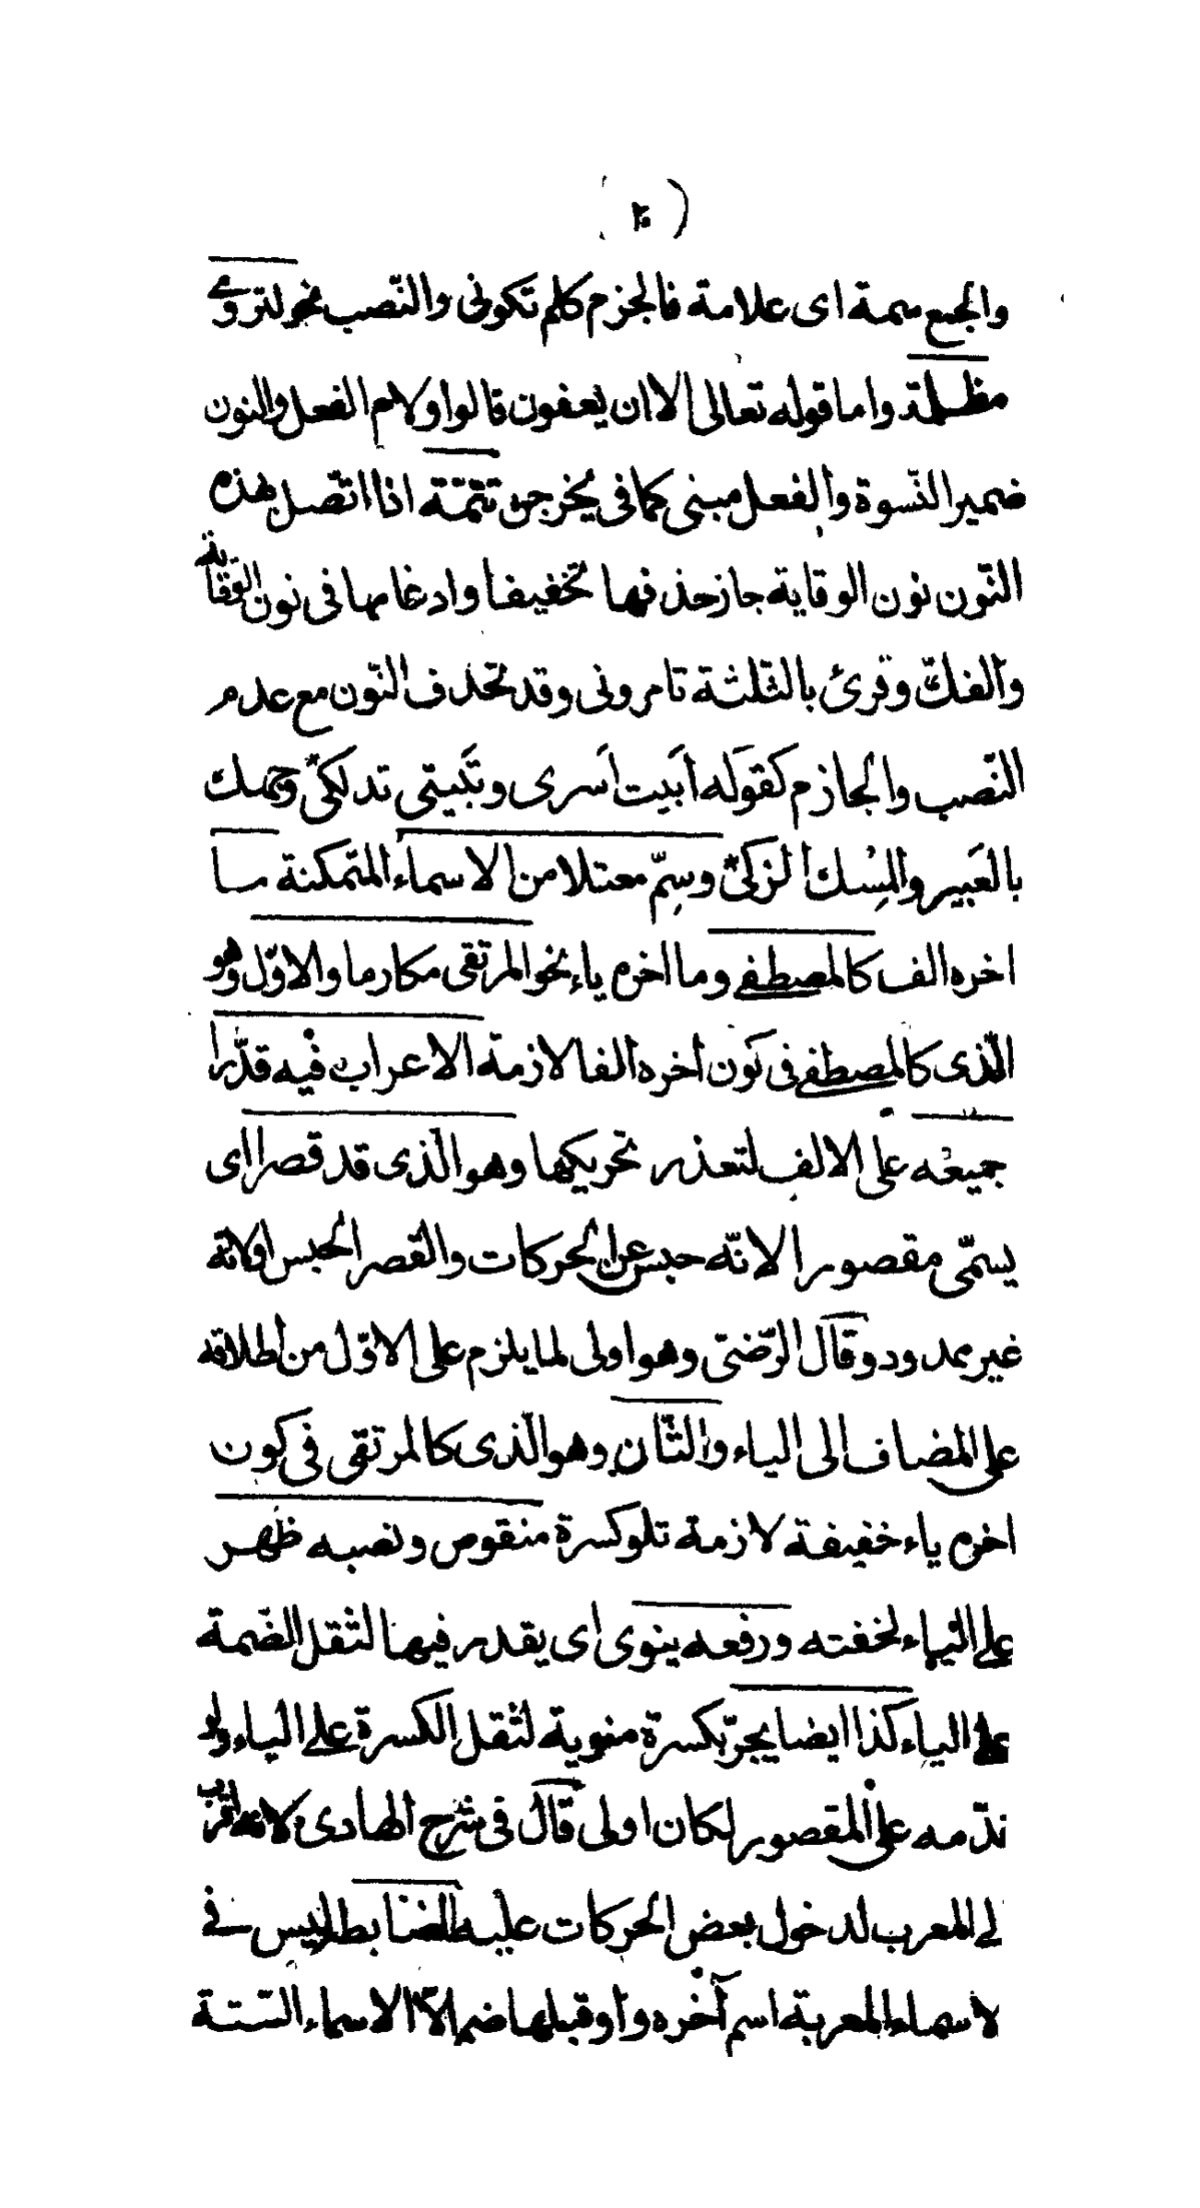 ( ٢٠ )
والجمع سمة اى علامة فالجزم كلم تكونى والنّصب نحو لترومى
مظلمة واما قوله تعالى الا ان يعفون قالوا ولام الفعل والنون
ضمير النّسوة والفعل مبنى كما فى يخرجن تتمّة اذا اتّصل بهذه
النّون نون الوقاية جاز حذفها تخفيفا وادغامها فى نون الوقاية
والفكّ وقرئ بالثّلثة تامرونى وقد تحذف النّون مع عدم
النّصب والجازم كقوله أبيت أسرى وتبيتى تدلكى * وجهك
بالعَبير والمِسْك الزكىّ * وسِمّ معتلا من الاسماء المتمكنة ما
اخره الف كالمصطفى وما اخره ياء نحو المرتقى مكارما والاوّل وهو
الّذى كالمصطفى فى كون أخره ألفا لازمة الاعراب فيه قدّرا
جميعه على الالف لتعذر تحريكها وهو الّذى قد قصرا اى
يسمّى مقصورا لانّه حبس عن الحركات والقصر الحبس اولانّه
غير ممدود وقال الرّضىّ وهو اولى لما يلزم على الاوّل من اطلاقه
على المضاف الى الياء والثّان وهو الّذى كالمرتقى فى كون
اخره ياء خفيفة لازمة تلو كسرة منقوص ونصبه ظهر
على الياء لخفته ورفعه ينوى اى يقدر فيها لثقل الضّمة
على الياء كذا ايضا يجرّ بكسرة منوية لثقل الكسرة على الياء ولو
قدّمه على المقصور لكان اولى قال فى شرح الهادى لانّه اقرب
لى المعرب لدخول بعض الحركات عليه ضابط ليس فى
لاسماء المعربة اسم آخره واو قبلها ضم الّا الاسماء السّتة